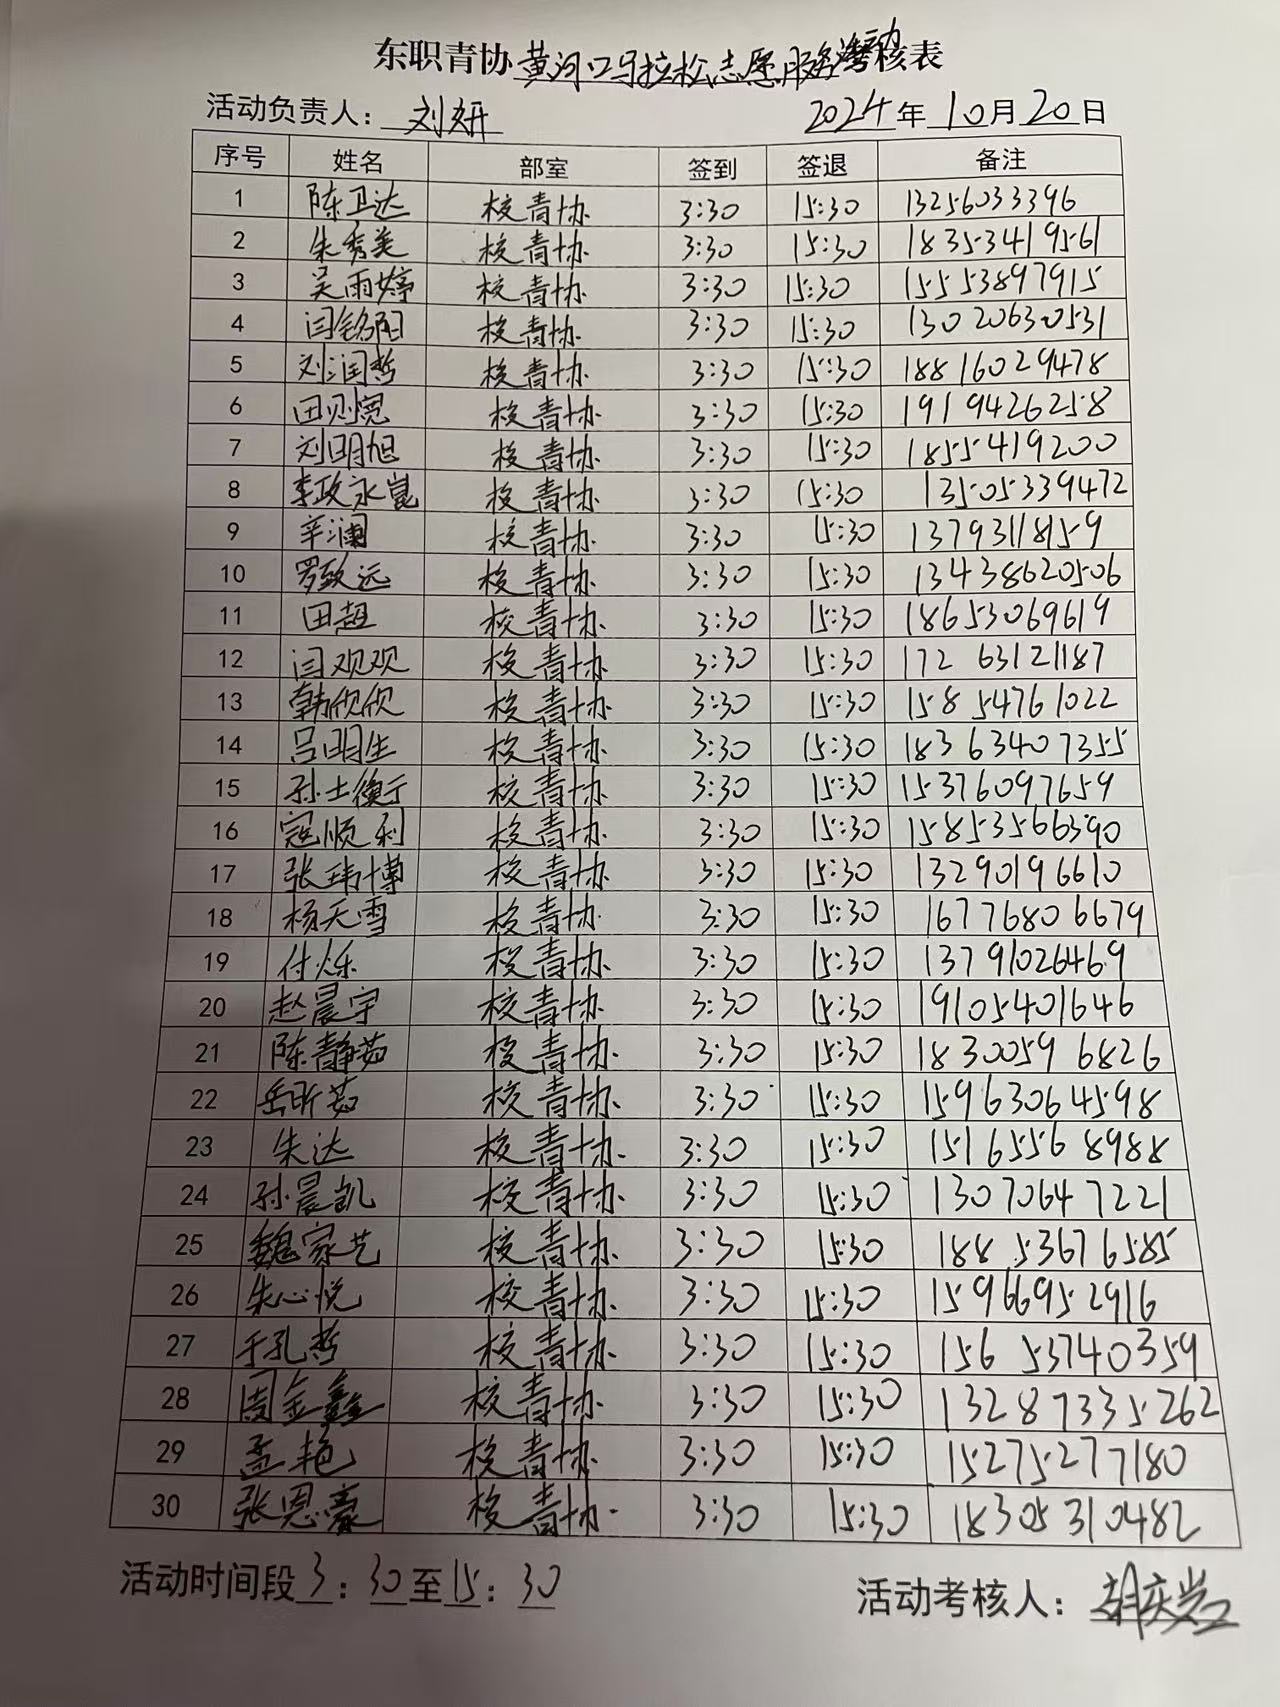 东职青协黄河口马拉松志愿服务活动考核表
活动负责人：刘妍 2024年10月20日
序号 姓名 部室 签到 签退 备注
1 陈卫达 校青协 3:30 15:30 13256033396
2 朱秀美 校青协 3:30 15:30 18353419561
3 吴雨婷 校青协 3:30 15:30 15553897915
4 闫铭阳 校青协 3:30 15:30 13020630531
5 刘润哲 校青协 3:30 15:30 18816029478
6 田则宽 校青协 3:30 15:30 1919426258
7 刘明旭 校青协 3:30 15:30 1855419200
8 李政永崑 校青协 3:30 15:30 13505339472
9 辛澜 校青协 3:30 15:30 13793118159
10 罗致远 校青协 3:30 15:30 13438620506
11 田超 校青协 3:30 15:30 18653069619
12 闫观观 校青协 3:30 15:30 17263121187
13 韩欣欣 校青协 3:30 15:30 15854761022
14 吕明生 校青协 3:30 15:30 18363407355
15 孙士衡 校青协 3:30 15:30 15376097659
16 寇顺利 校青协 3:30 15:30 15853566390
17 张玮博 校青协 3:30 15:30 13290196610
18 杨天雪 校青协 3:30 15:30 16776806679
19 付烁 校青协 3:30 15:30 13791026469
20 赵晨宇 校青协 3:30 15:30 19105401646
21 陈静茹 校青协 3:30 15:30 18300596826
22 岳昕茹 校青协 3:30 15:30 15963064598
23 朱达 校青协 3:30 15:30 15165568988
24 孙晨凯 校青协 3:30 15:30 13070647221
25 魏家艺 校青协 3:30 15:30 18853676585
26 朱心悦 校青协 3:30 15:30 15966952916
27 于孔哲 校青协 3:30 15:30 15653740359
28 周金鑫 校青协 3:30 15:30 13287335262
29 孟艳 校青协 3:30 15:30 15275277180
30 张恩豪 校青协 3:30 15:30 18305310482
活动时间段3：30至15：30 活动考核人：胡庆